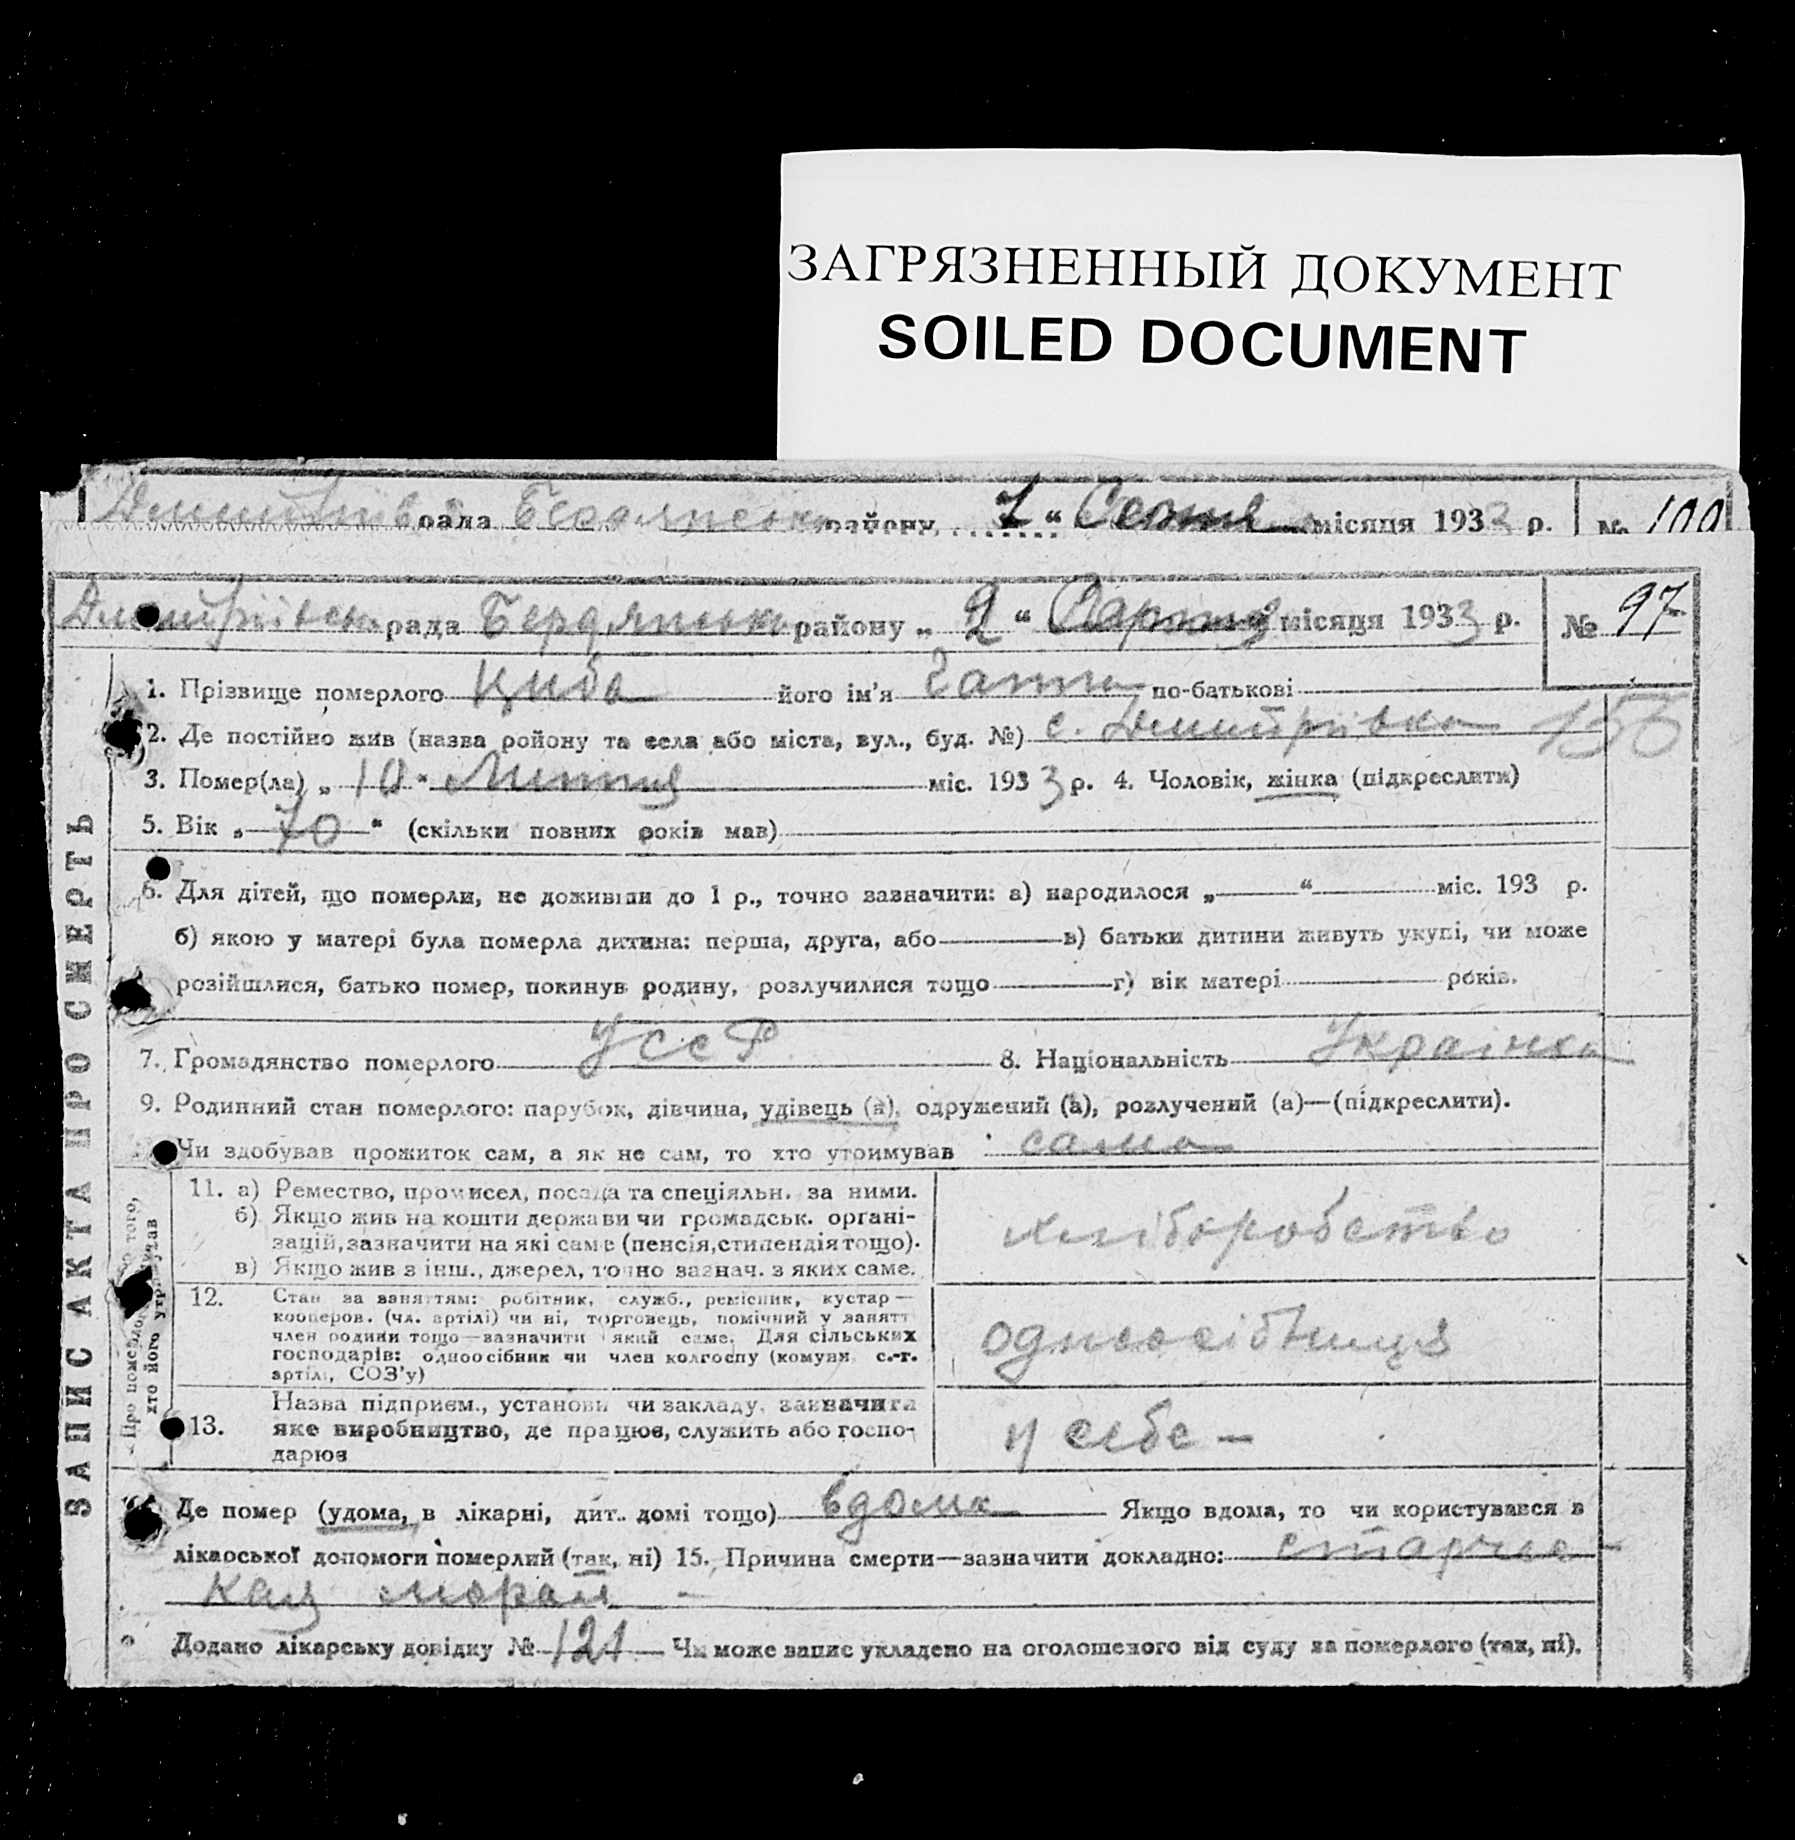 ЗАГРЯЗНЕННЫЙ ДОКУМЕНТ
SOILED DOCUMENT
рада району „ 7 “ місяця 1933 р. № 100
рада Бердянськ району „ 9 “ місяця 1933 р. № 97
1. Прізвище померлого Циба його ім’я по-батькові
2. Де постійно жив (назва ройону та села або міста, вул., буд. №) с. Дмитрівка 156
3. Помер(ла) „ 10 “ міс. 1933 р. 4. Чоловік, жінка (підкреслити)
5. Вік „ 70 “ (скільки повних років мав)
6. Для дітей, що померли, не доживши до 1 р., точно зазначити: а) народилося „ “ міс. 193 р.
б) якою у матері була померла дитина: перша, друга, або в) батьки дитини живуть укупі, чи може
розійшлися, батько помер, покинув родину, розлучилися тощо г) вік матері років.
7. Громадянство померлого УССР 8. Національність Українка
9. Родинний стан померлого: парубок, дівчина, удівець (а), одружений (а), розлучений (а)—(підкреслити).
Чи здобував прожиток сам, а як не сам, то хто утримував сама
11. а) Ремество, промисел, посада та спеціяльн. за ними.
б) Якщо жив на кошти держави чи громадськ. органі-
зацій, зазначити на які саме (пенсія, стипендія тощо).
в) Якщо жив з інш., джерел, точно зазнач. з яких саме.
хліборобство
12. Стан за заняттям: робітник, служб., ремісник, кустар —
кооперов. (чл. артілі) чи ні, торговець, помічний у занятт
член родини тощо — зазначити який саме. Для сільських
господарів: одноосібник чи член колгоспу (комуни, с.-г.
артілі, СОЗ’у)
одноосібниця
13. Назва підприєм., установи чи закладу, зазначити
яке виробництво, де працює, служить або госпо-
дарює
у себе —
Де помер (удома, в лікарні, дит. домі тощо) вдома Якщо вдома, то чи користувався в
лікарської допомоги померлий (так, ні) 15. Причина смерти—зазначити докладно: старче-
Додано лікарську довідку № 121 Чи може запис укладено на оголошеного від суду за померлого (так, ні).
ЗАПИС АКТА ПРО СМЕРТЬ